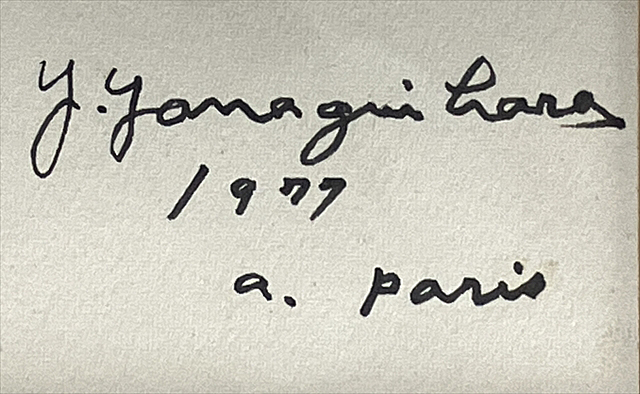 Y. Yanaguihara
1977
a. paris